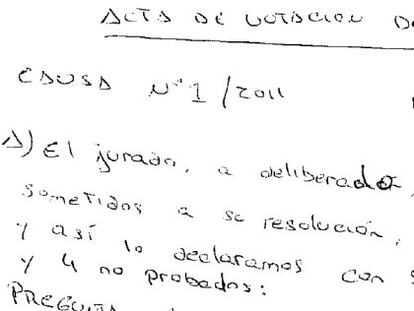 ACTA DE VOTACION DE
CAUSA Nº 1 / 2011
A) El jurado, a deliberado,
sometidos a se resolución,
y así lo declaramos con s
y 4 no probados:
PREGUNTA